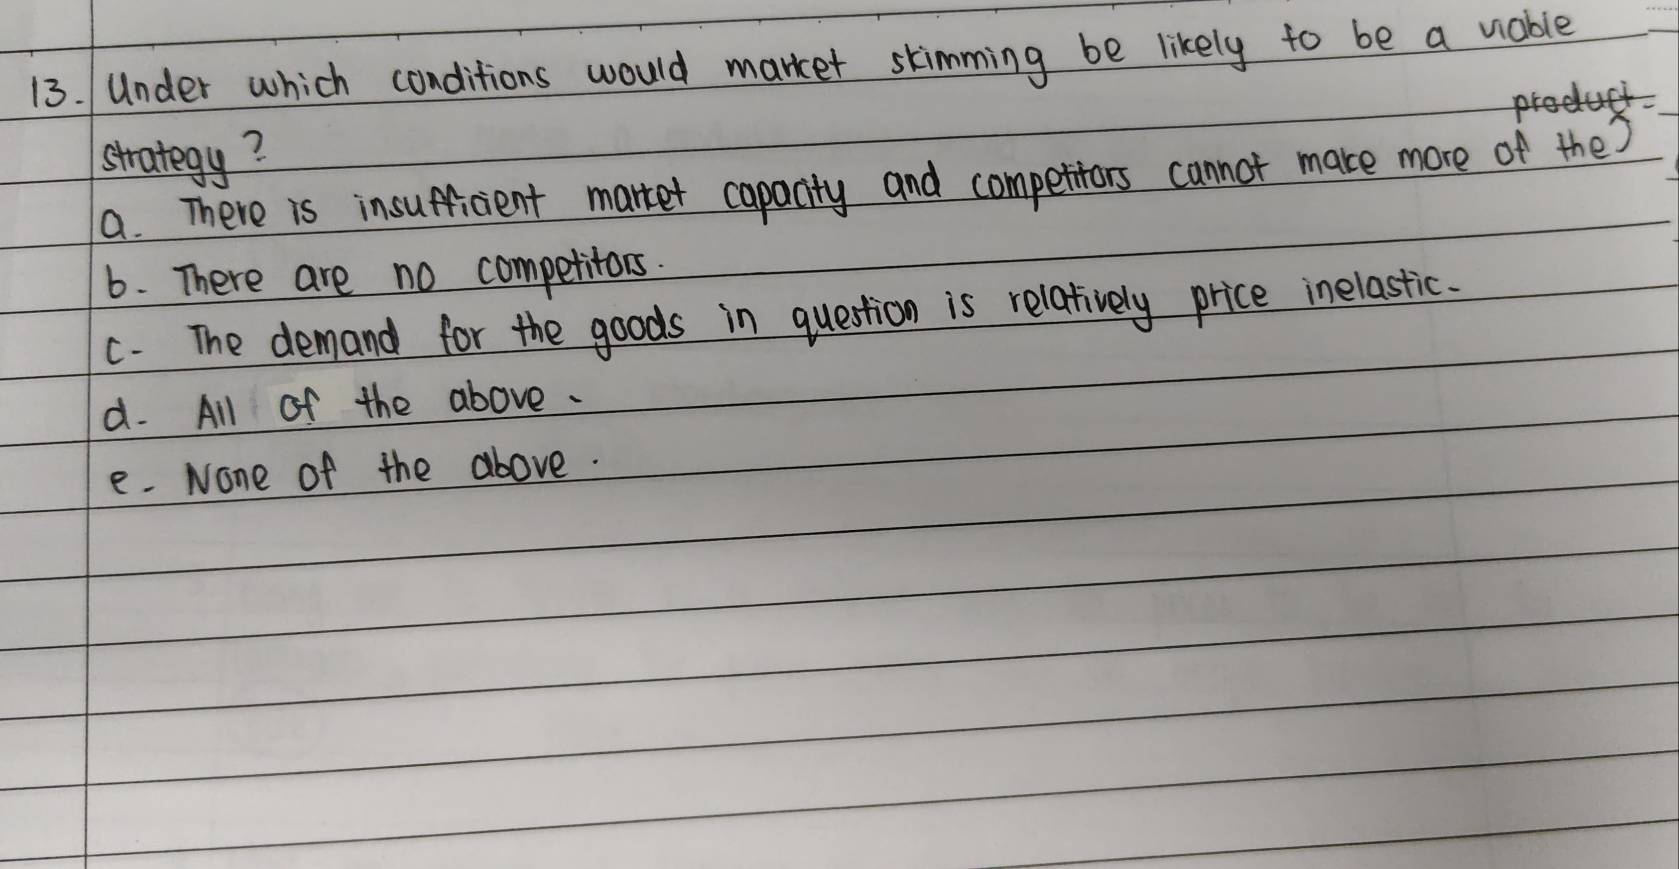 13. Under which conditions would market skimming be likely to be a viable
strategy?
a. There is insufficient market capacity and competitors cannot make more of the
product.
b. There are no competitors.
c. The demand for the goods in question is relatively price inelastic.
d. All of the above.
e. None of the above.